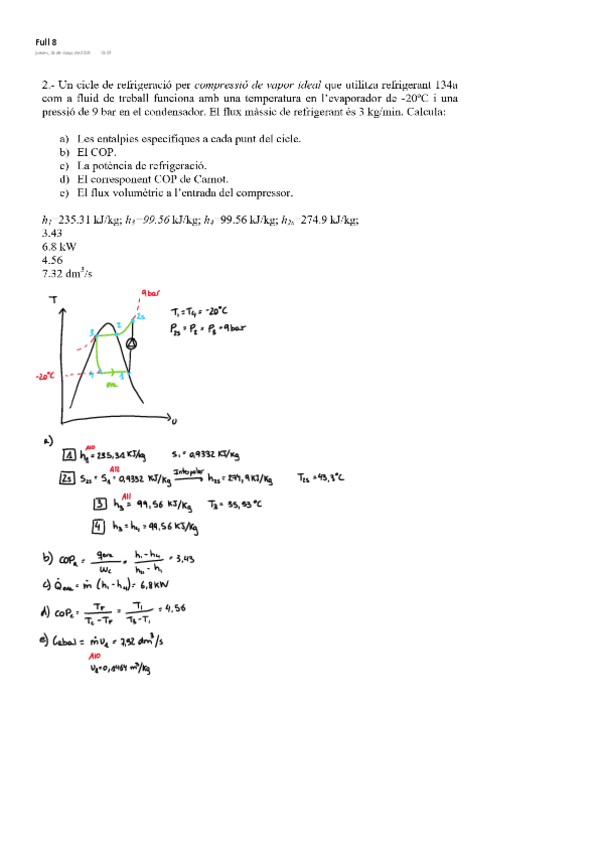 Full 8
2.- Un cicle de refrigeració per compressió de vapor ideal que utilitza refrigerant 134a
com a fluid de treball funciona amb una temperatura en l'evaporador de -20ºC i una
pressió de 9 bar en el condensador. El flux màssic de refrigerant és 3 kg/min. Calcula:
a) Les entalpies específiques a cada punt del cicle.
b) El COP.
c) La potència de refrigeració.
d) El corresponent COP de Carnot.
e) El flux volumètric a l'entrada del compressor.
h₁=235.31 kJ/kg; h₃=99.56 kJ/kg; h₄=99.56 kJ/kg; h₂ₛ=274.9 kJ/kg;
3.43
6.8 kW
4.56
7.32 dm³/s
9 bar
T
2s
3 2
-20°C
4 1
m
v
T₁ = T₄ = -20°C
P₂ₛ = P₂ = P₃ = 9 bar
a)
A10
1 h₁ = 235,31 KJ/kg s₁ = 0,9332 KJ/kg
A12
2s s₂ₛ = s₁ = 0,9332 KJ/kg Interpolar → h₂ₛ = 274,9 KJ/kg T₂ₛ = 43,3°C
A11
3 h₃ = 99,56 KJ/kg T₃ = 35,53°C
4 h₃ = h₄ = 99,56 KJ/kg
b) COP = = h₁ - h₄ = 3,43
c) = ṁ (h₁ - h₄) = 6,8 KW
d) COP = = = 4,56
T₃ - T₁
e) Cabal = ṁv₁ = 7,32 dm³/s
A10
v₁ = 0,1464 m³/kg